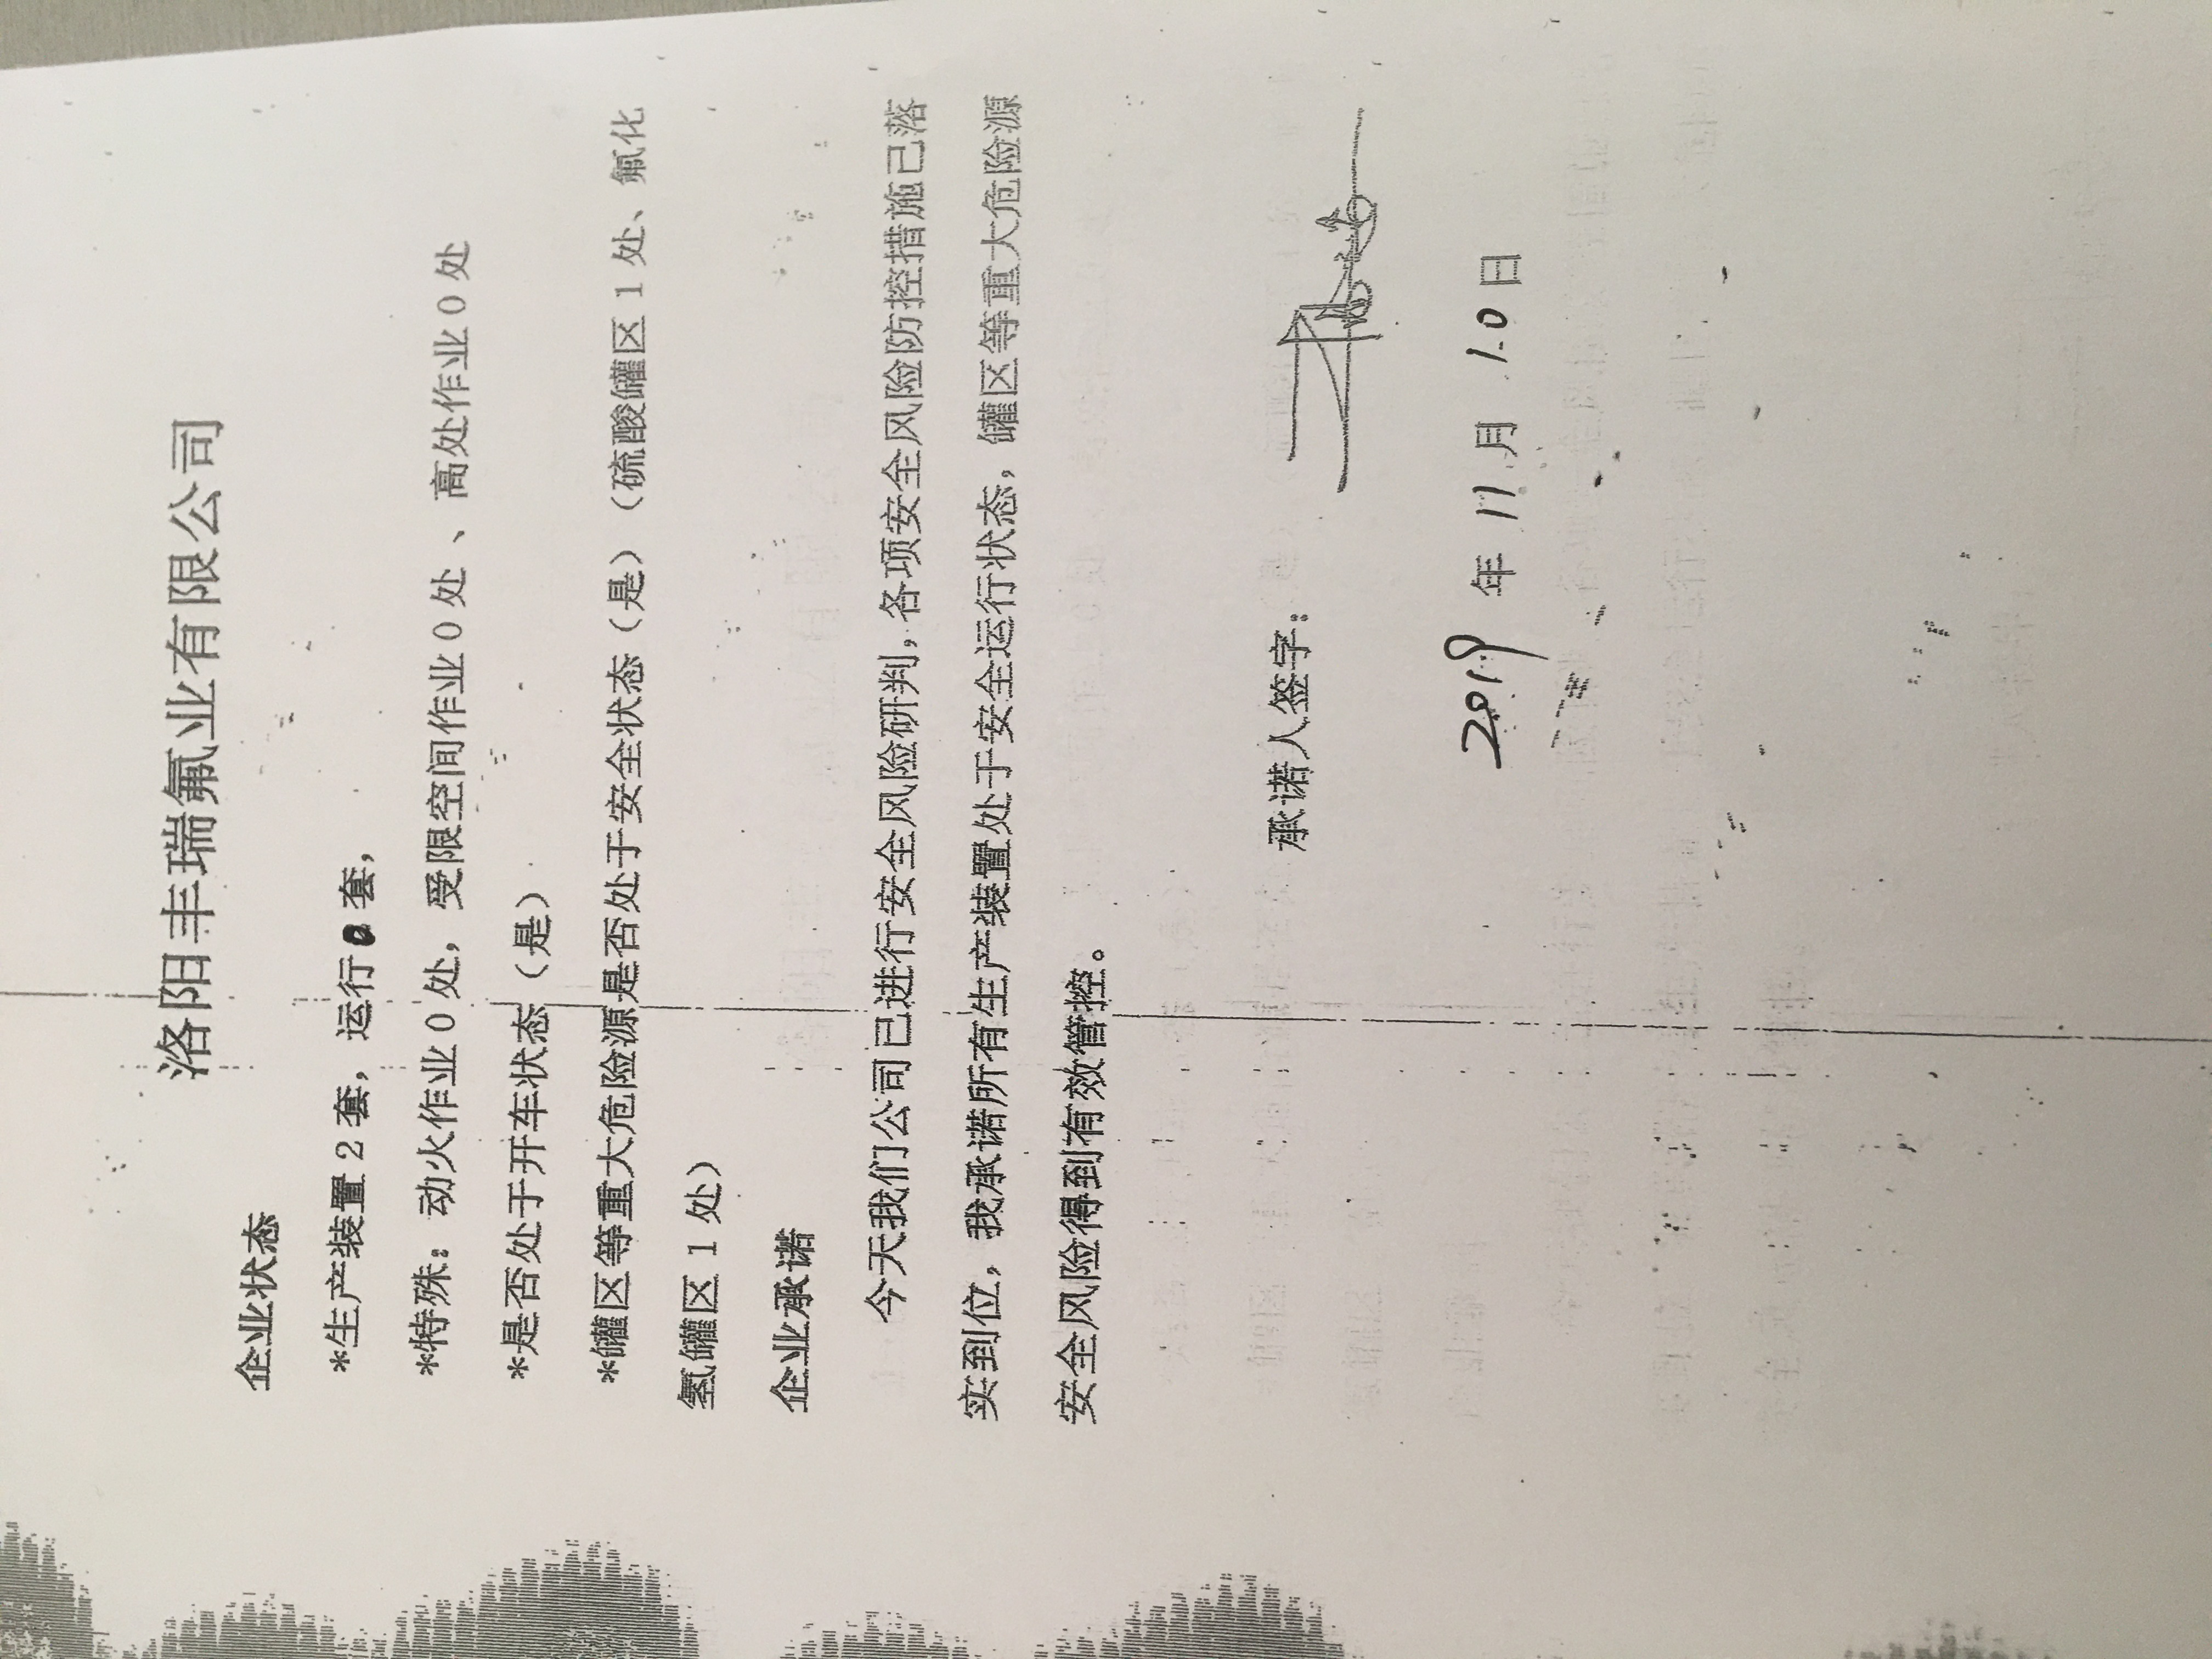 洛阳丰瑞氟业有限公司
企业状态
*生产装置2套，运行0套，
*特殊：动火作业0处，受限空间作业0处、高处作业0处
*是否处于开车状态（是）
*罐区等重大危险源是否处于安全状态（是）（硫酸罐区1处、氟化
氢罐区1处）
企业承诺
今天我们公司已进行安全风险研判，各项安全风险防控措施已落
实到位，我承诺所有生产装置处于安全运行状态，罐区等重大危险源
安全风险得到有效管控。
承诺人签字：
2019年11月10日